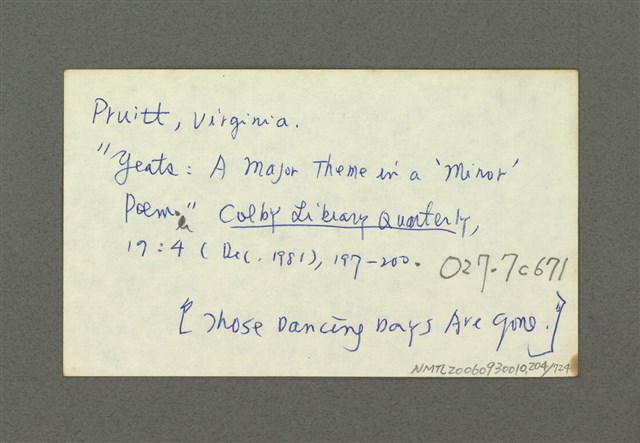 Pruitt, Virginia.
"Yeats: A Major Theme in a 'Minor'
Poem." Colby Library Quarterly,
17:4 (Dec. 1981), 197-200. 027.7c671
["Those Dancing Days Are Gone."]
NMTL20060930010,204/724